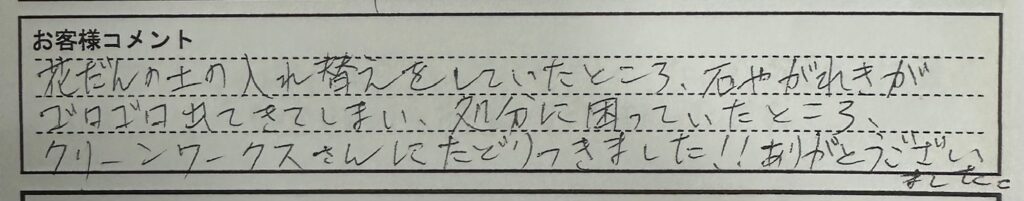 お客様コメント
花だんの土の入れ替えをしていたところ、石やがれきが
ゴロゴロ出てきてしまい、処分に困っていたところ、
クリーンワークスさんにたどりつきました!!ありがとうござい
ました。